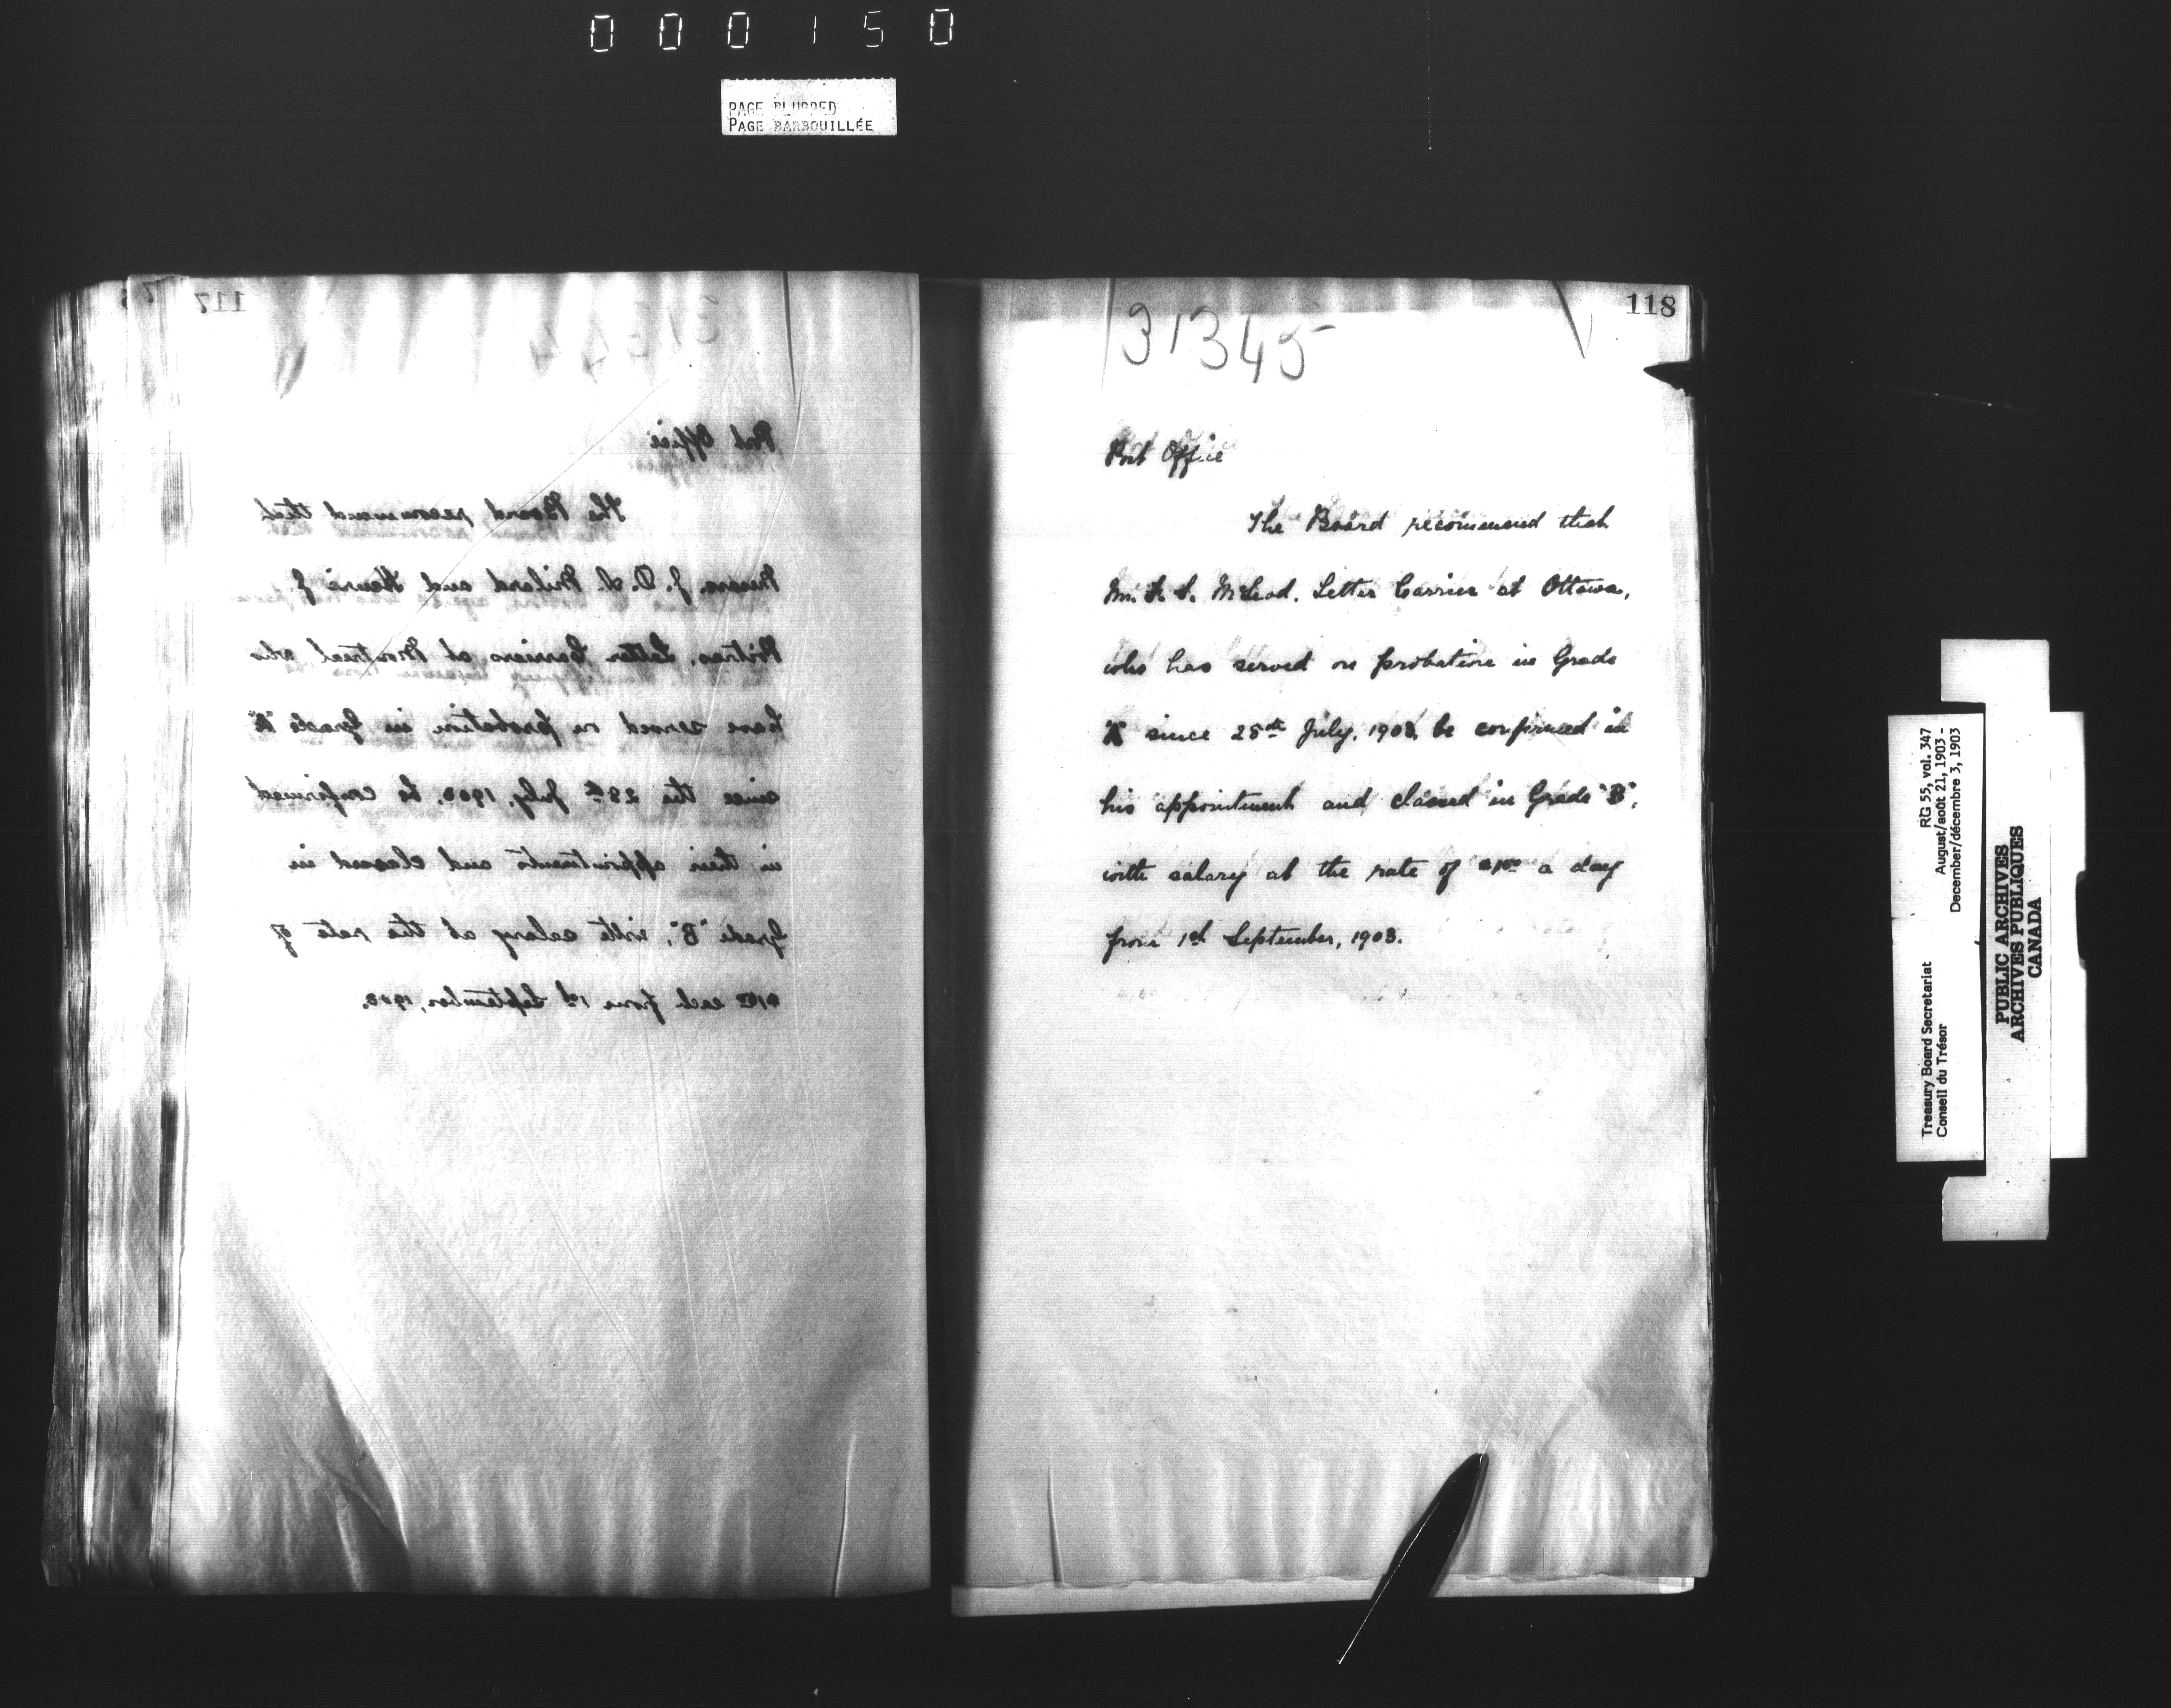 000150
PAGE BLURRED
PAGE BARBOUILLÉE
117
Post Office
The Board recommend that
Messrs. J. D. S. and Henri J.
Letter Carriers at Montreal, who
have served on probation in Grade "A"
since the 28th July, 1903, be confirmed
in their appointments and classed in
Grade "B", with salary at the rate of
each from 1st September, 1903.
118
31345
Post Office
The Board recommend that
Mr. S. McLeod, Letter Carrier at Ottawa,
who has served on probation in Grade
"A" since 28th July, 1903, be confirmed in
his appointment and classed in Grade "B",
with salary at the rate of a day
from 1st September, 1903.
Treasury Board Secretariat RG 55, vol. 347
Conseil du Trésor August/août 21, 1903 -
December/décembre 3, 1903
PUBLIC ARCHIVES
ARCHIVES PUBLIQUES
CANADA